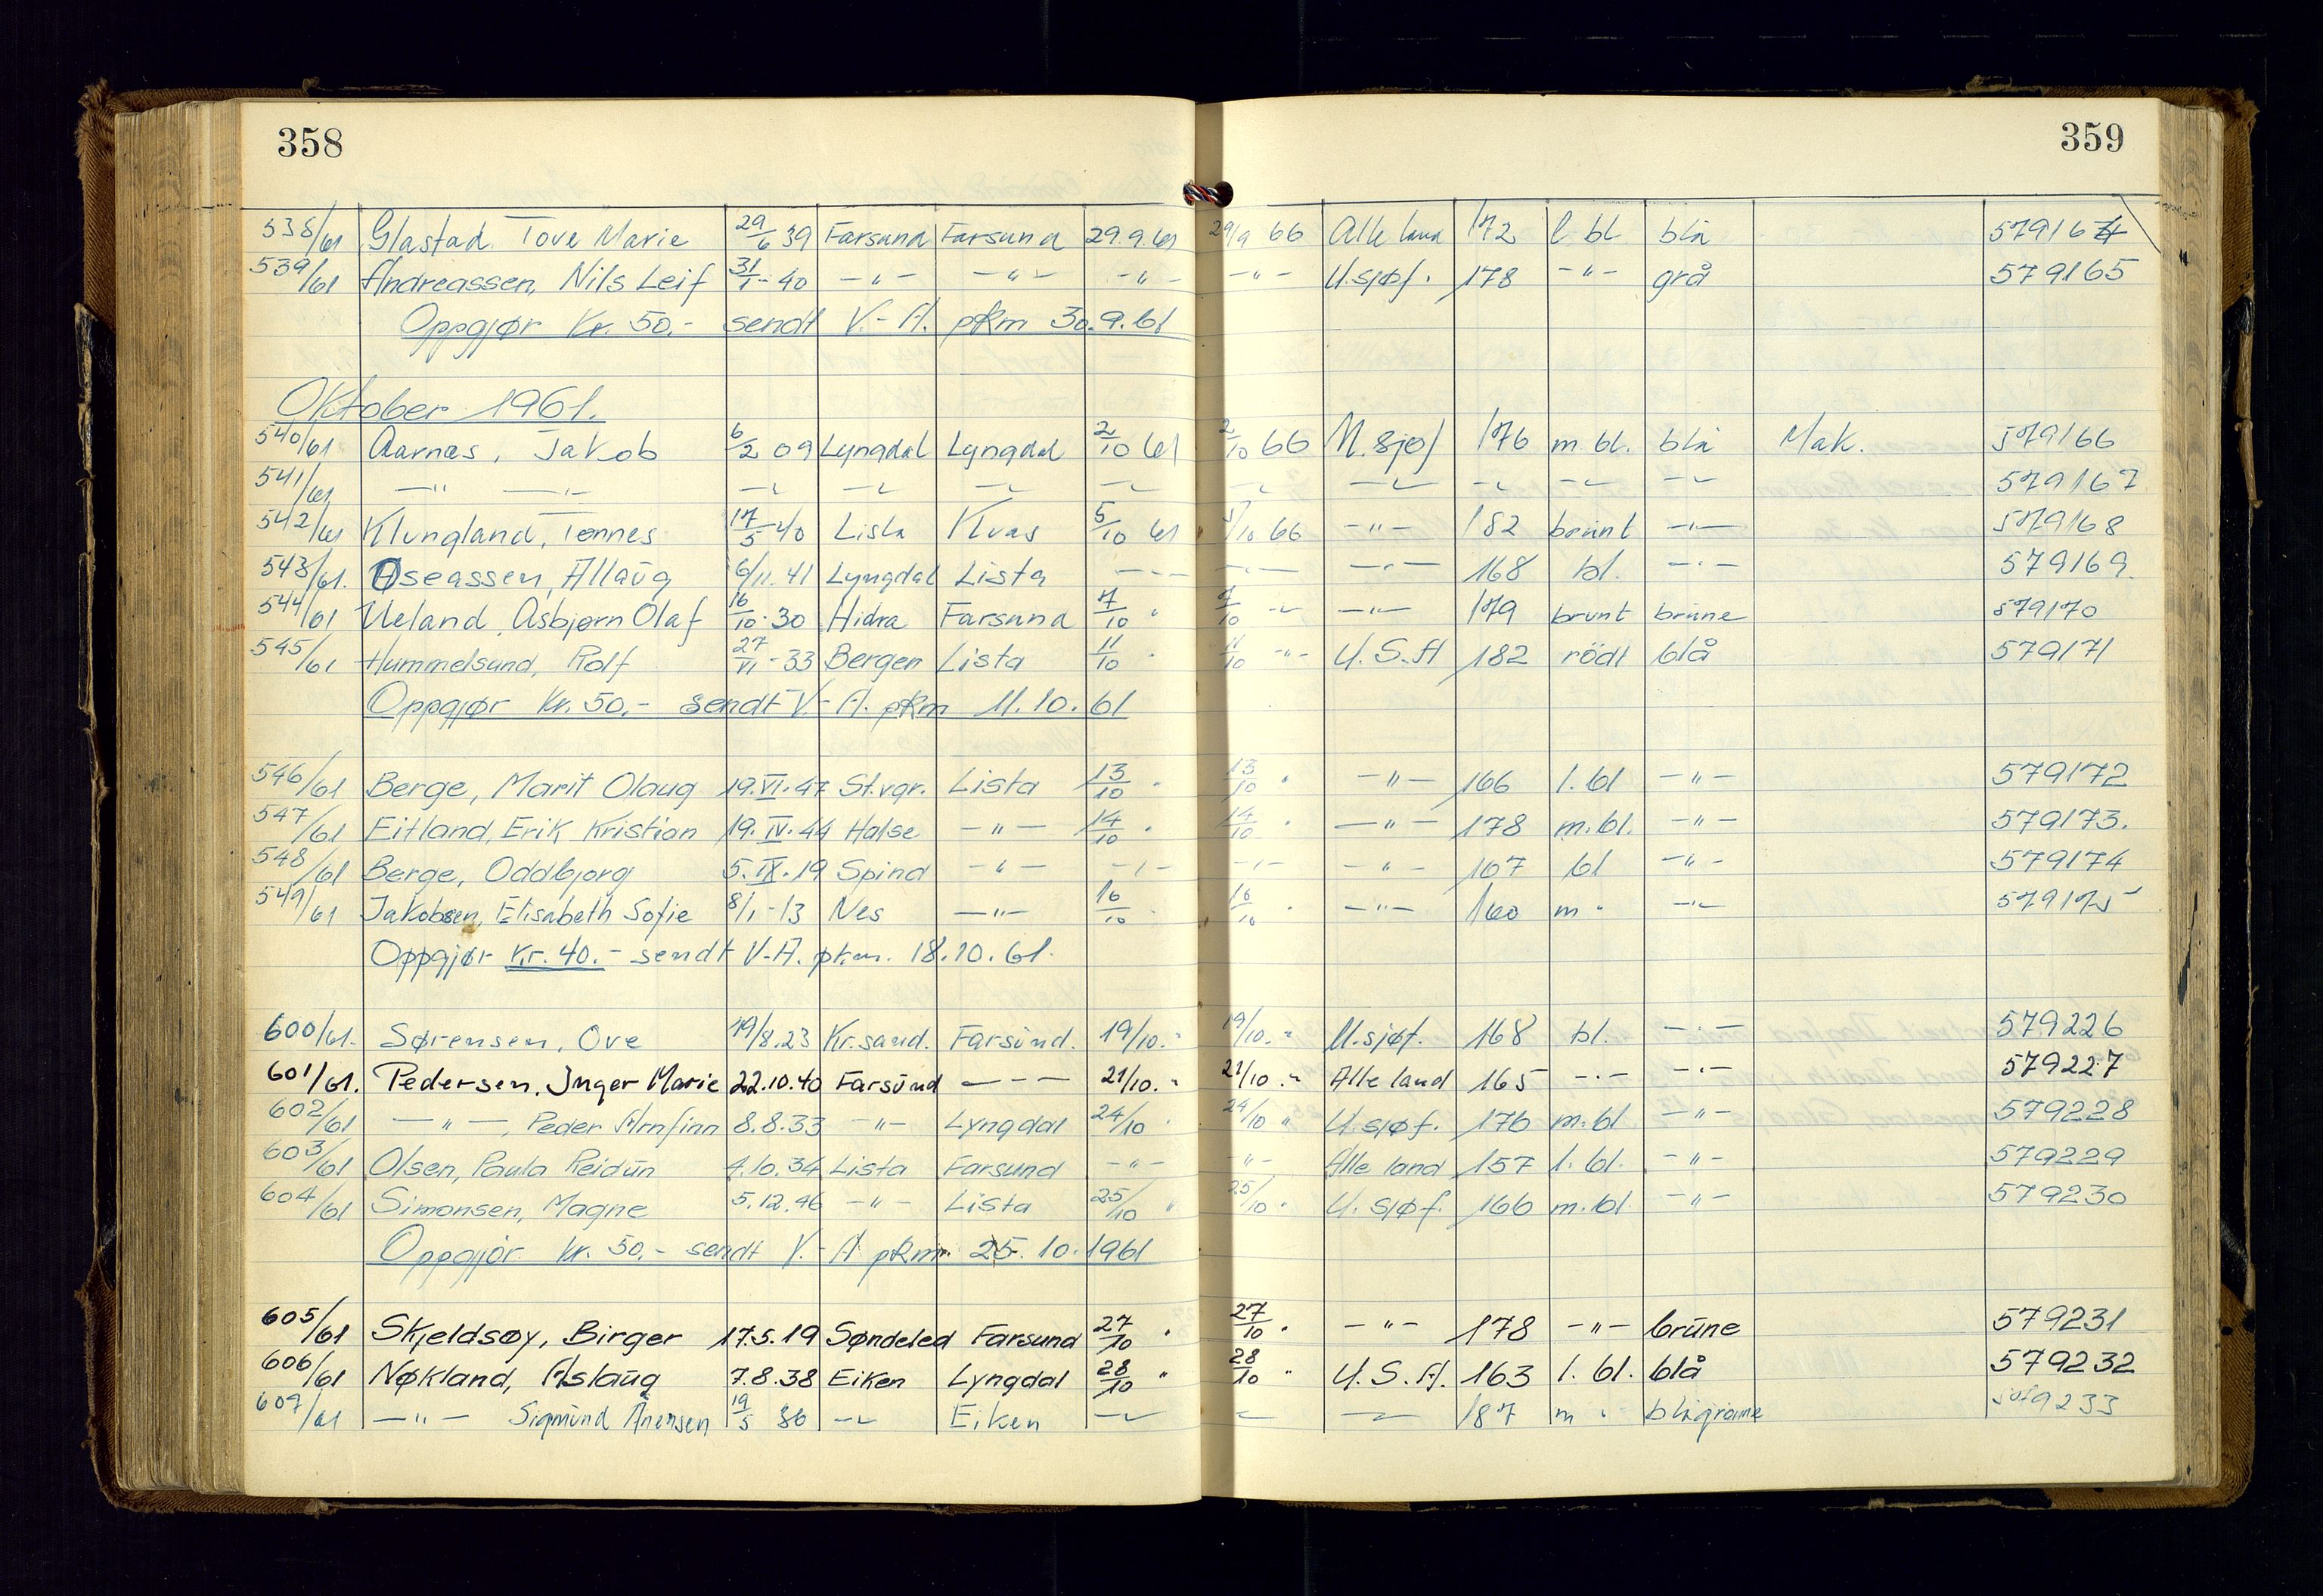 358
359
538/61 Glastad Tove Marie 29/6 39 Farsund Farsund 29.9.61 29/9 66 Alle land 172 l. bl blå 579164
539/61 Andreassen, Nils Leif 31/1-40 -"- -"- -"- -"- U.sjøf. 178 -"- grå 579165
Oppgjør Kr. 50.- sendt V.-A. pkm 30.9.61
Oktober 1961.
540/61 Aarnes, Jakob 6/2 09 Lyngdal Lyngdal 2/10 61 2/10 66 U.sjøf 176 m. bl. blå Mak. 579166
541/61 -"- -"- -"- -"- -"- -"- -"- -"- -"- -"- -"- 579167
542/61 Klungland, Tønnes 17/5-40 Lista Kvås 5/10 61 5/10 66 -"- 182 brunt -"- 579168
543/61. Åseassen, Allaug 6/11.41 Lyngdal Lista -"- -"- -"- 168 bl. -"- 579169.
544/61 Ueland, Asbjørn Olaf 16/10.30 Hidra Farsund 7/10 " 7/10 -"- -"- 179 brunt brune 579170
545/61 Hummelsund, Rolf 27/VI-33 Bergen Lista 11/10 " 11/10 -"- U.S.A 182 rödt blå 579171
Oppgjør Kr. 50,- sendt V.-A. pkm 11.10.61
546/61 Berge, Marit Olaug 19.VI.47 St.vgr. Lista 13/10 " 13/10 " -"- 166 l. bl -"- 579172
547/61 Eitland, Erik Kristian 19.IV.44 Halse -"- 14/10 " 14/10 " -"- 178 m. bl. -"- 579173.
548/61 Berge, Oddbjørg 5.IX.19 Spind -"- -"- -"- -"- 167 bl -"- 579174
549/61 Jakobsen, Elisabeth Sofie 8/1-13 Nes -"- 16/10 " 16/10 " -"- 160 m " -"- 579175
Oppgjør Kr. 40.- sendt V-A. pkm. 18.10.61.
600/61. Sørensen, Ove 19/8.23 Kr.sand. Farsund. 19/10." 19/10." U.sjøf. 168 bl. -"- 579226
601/61. Pedersen, Inger Marie 22.10.40 Farsund --- 21/10." 21/10." Alle land 165 -"- -"- 579227
602/61 -"-, Peder Arnfinn 8.8.33 -"- Lyngdal 24/10 " 24/10 " U.sjøf. 176 m. bl -"- 579228
603/61 Olsen, Paula Reidun 4.10.34 Lista Farsund -"- -"- Alle land 157 l. bl. -"- 579229
604/61 Simonsen, Magne 5.12.46 -"- Lista 25/10 " 25/10 " U. sjøf. 166 m. bl. -"- 579230
Oppgjör kr. 50,- sendt V.-A pkm. 25.10.1961
605/61 Skjeldsøy, Birger 17.5.19 Søndeled Farsund 27/10 " 27/10 " -"- 178 -"- brune 579231
606/61 Nøkland, Aslaug 7.8.38 Eiken Lyngdal 28/10 " 28/10 " U.S.A. 163 l. bl. blå 579232
607/61 -"- Sigmund Arensen 19/5 36 -"- Eiken -"- -"- -"- 187 m " blågrønne 579233